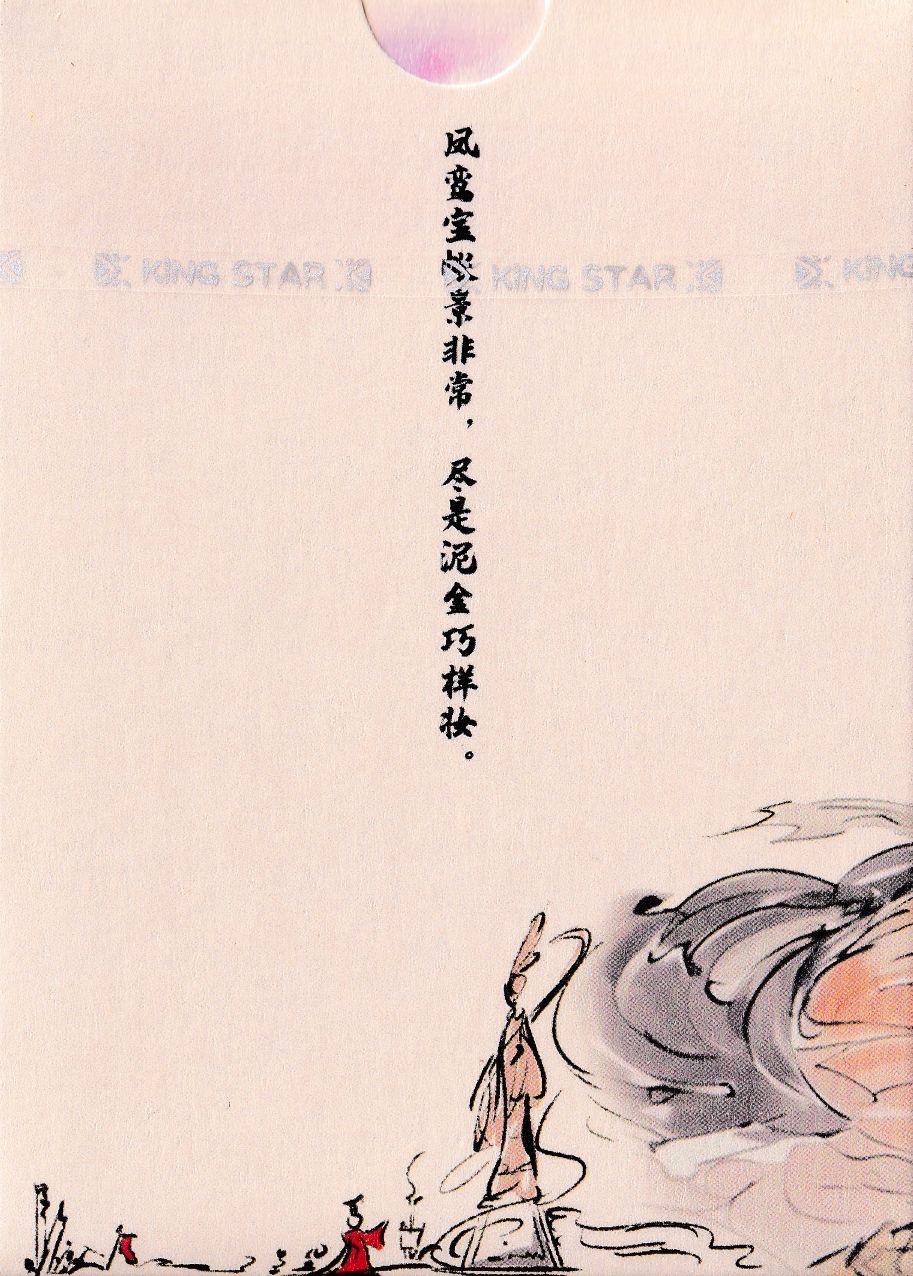 凤鸾宝帐景非常，尽是泥金巧样妆。
KING STAR KING STAR KING